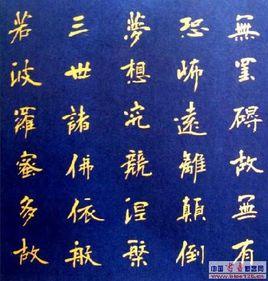 無罣碍故無有
恐怖遠離顛倒
夢想究競涅槃
三世諸佛依般
若波羅蜜多故